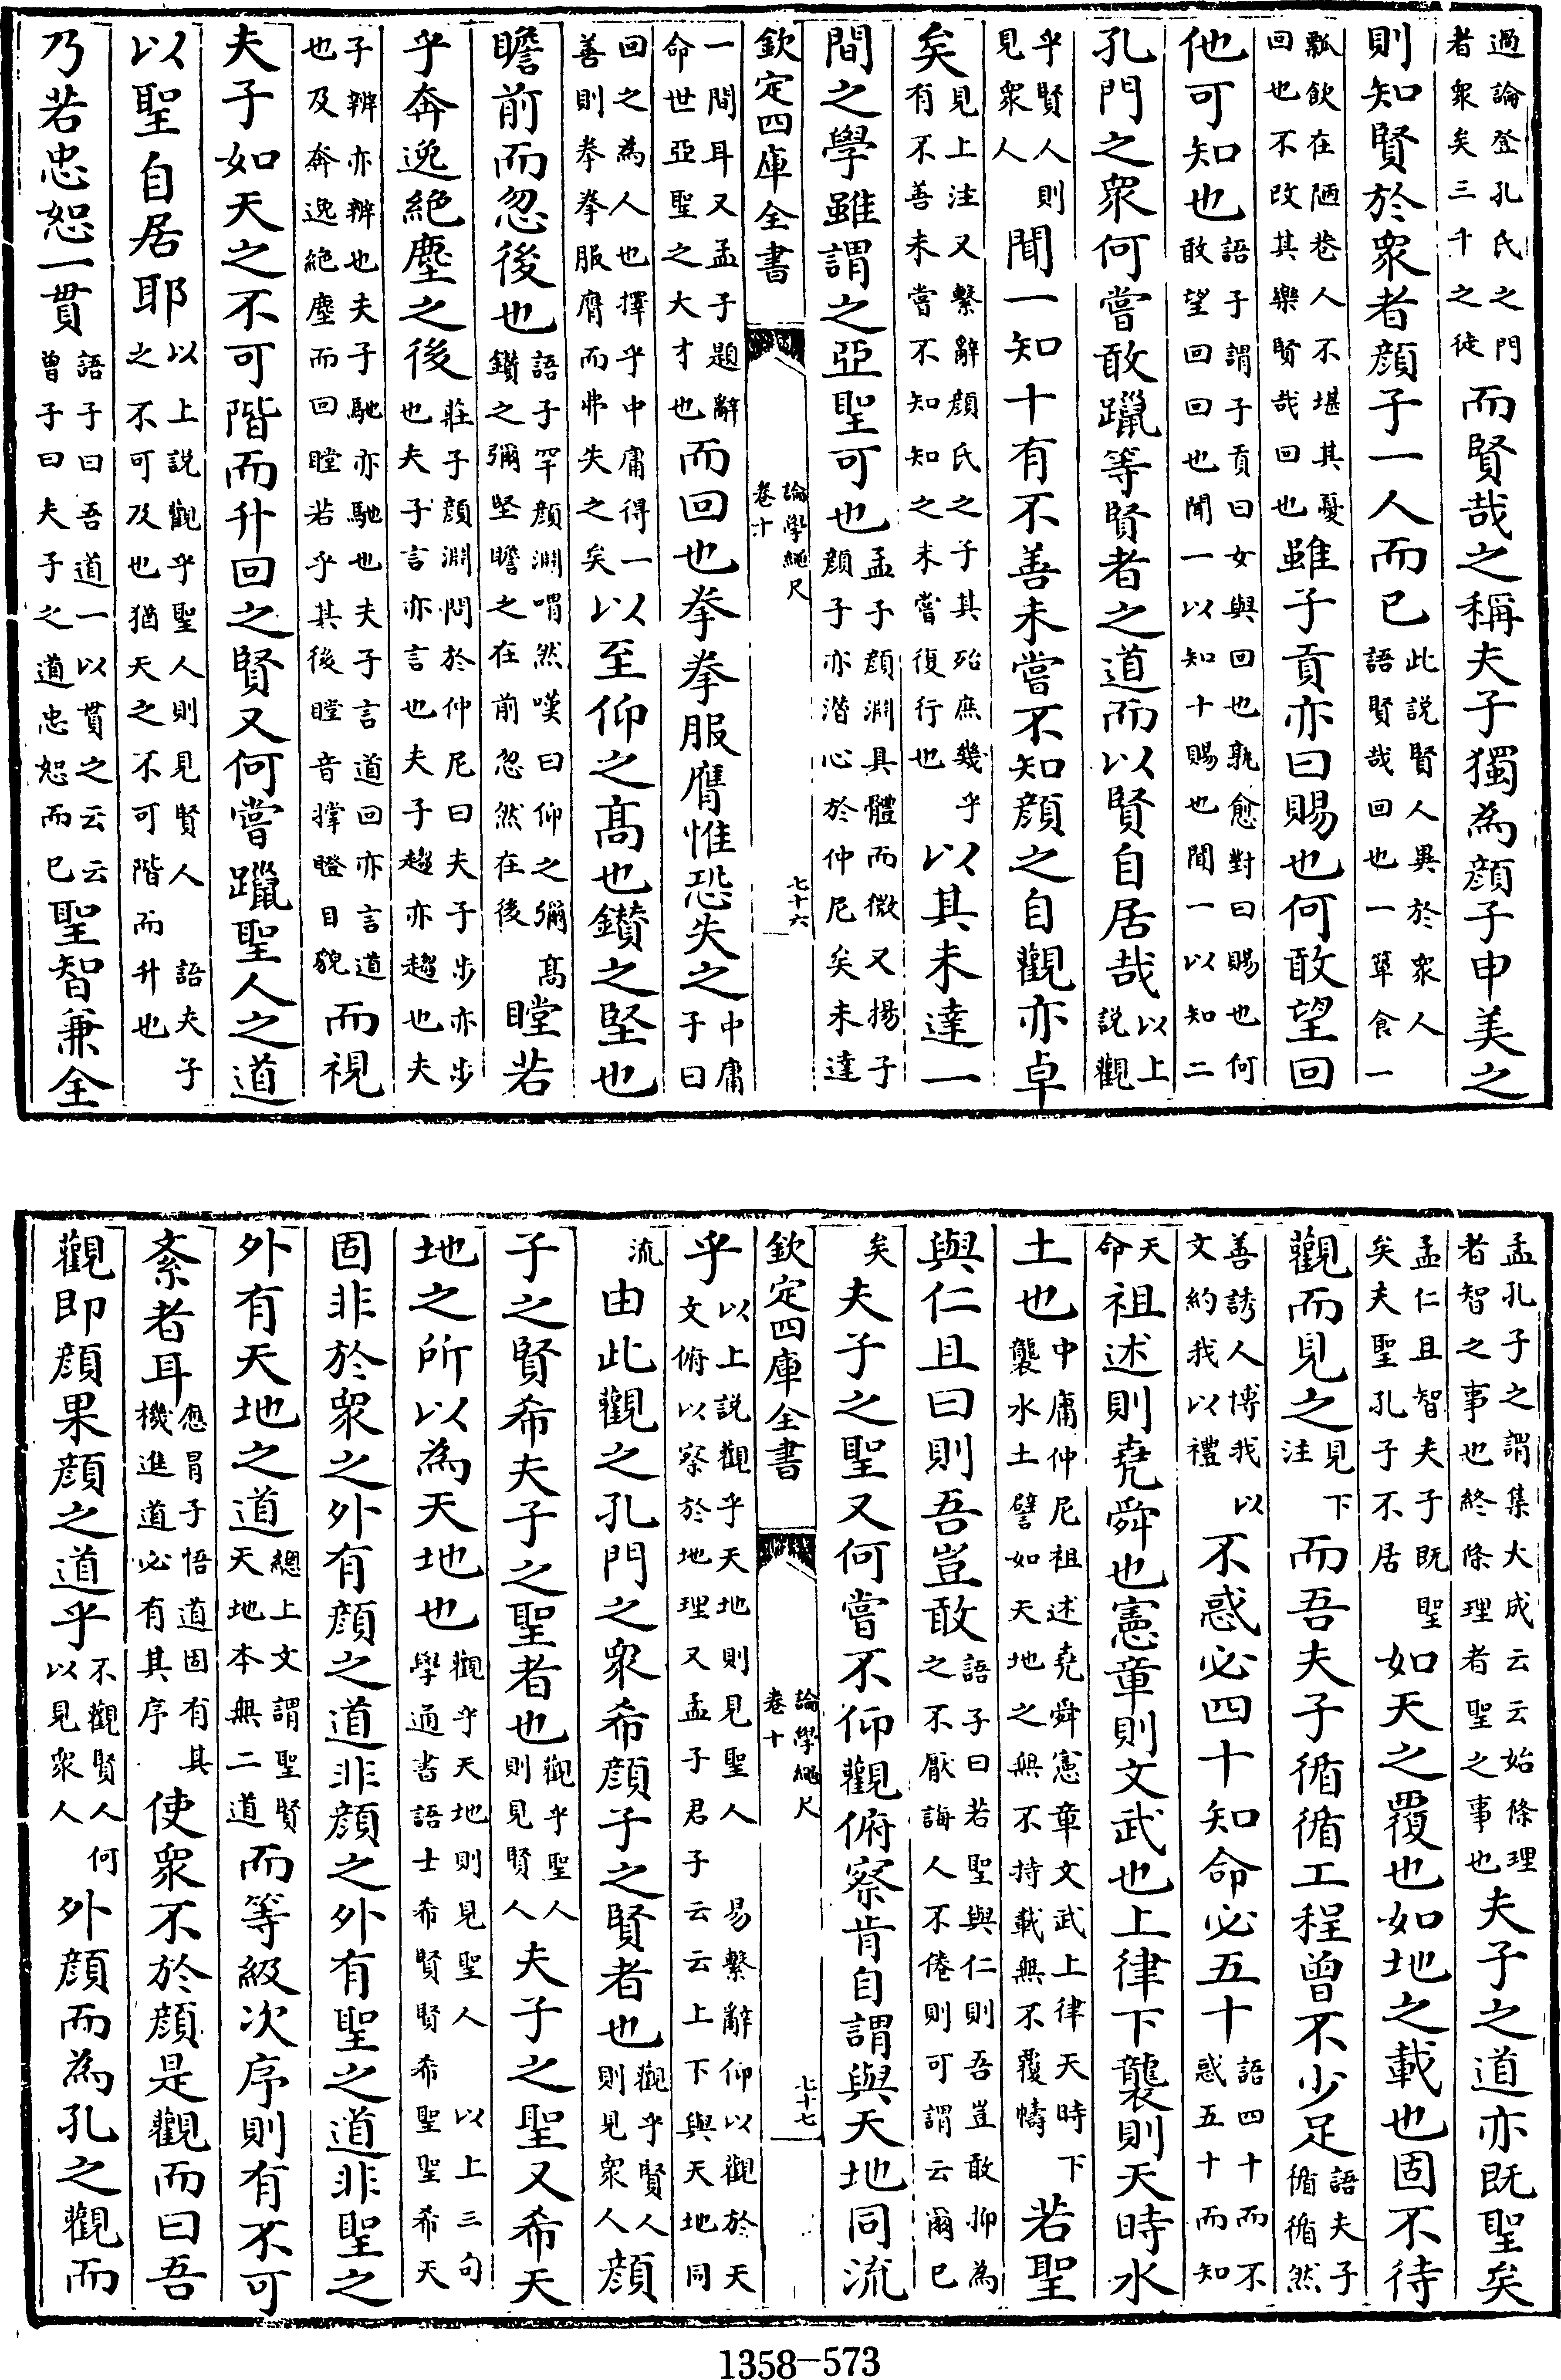 過論登孔氏之門者衆矣三千之徒而賢哉之稱夫子獨為顔子申美之
則知賢於衆者顔子一人而已此說賢人異於衆人語賢哉回也一簞食一
瓢飲在陋巷人不堪其憂回也不改其樂賢哉回也雖子貢亦曰賜也何敢望回
他可知也語子謂子貢曰女與回也孰愈對曰賜也何敢望回回也聞一以知十賜也聞一以知二
孔門之衆何嘗敢躐等賢者之道而以賢自居哉以上說觀
乎賢人則見衆人聞一知十有不善未嘗不知顔之自觀亦卓
矣見上注又繫辭顔氏之子其殆庶幾乎有不善未嘗不知知之未嘗復行也以其未達一
間之學雖謂之亞聖可也孟子顔淵具體而微又揚子顔子亦潛心於仲尼矣未達
欽定四庫全書 論學繩尺 卷十 七十六
一間耳又孟子題辭命世亞聖之大才也而回也拳拳服膺惟恐失之中庸子曰
回之為人也擇乎中庸得一善則拳拳服膺而弗失之矣以至仰之高也鑚之堅也
瞻前而忽後也語子罕顔淵喟然嘆曰仰之彌高鑚之彌堅瞻之在前忽然在後瞠若
乎奔逸絶塵之後莊子顔淵問於仲尼曰夫子步亦步也夫子言亦言也夫子趨亦趨也夫
子辨亦辨也夫子馳亦馳也夫子言道回亦言道也及奔逸絶塵而回瞠若乎其後瞠音撑瞪目貌而視
夫子如天之不可階而升回之賢又何嘗躐聖人之道
以聖自居耶以上說觀乎聖人則見賢人 語夫子之不可及也猶天之不可階而升也
乃若忠恕一貫語子曰吾道一以貫之云云曾子曰夫子之道忠恕而已聖智兼全
孟孔子之謂集大成云云始條理者智之事也終條理者聖之事也夫子之道亦既聖矣
孟仁且智夫子既聖矣夫聖孔子不居如天之覆也如地之載也固不待
觀而見之見下注而吾夫子循循工程曾不少足語夫子循循然
善誘人博我以文約我以禮不惑必四十知命必五十語四十而不惑五十而知
天命祖述則堯舜也憲章則文武也上律下襲則天時水
土也中庸仲尼祖述堯舜憲章文武上律天時下襲水土譬如天地之無不持載無不覆幬若聖
與仁且曰則吾豈敢語子曰若聖與仁則吾豈敢抑為之不厭誨人不倦則可謂云爾已
矣夫子之聖又何嘗不仰觀俯察肯自謂與天地同流
欽定四庫全書 論學繩尺 卷十 七十七
乎以上說觀乎天地則見聖人 易繫辭仰以觀於天文俯以察於地理又孟子君子云云上下與天地同
流由此觀之孔門之衆希顔子之賢者也觀乎賢人則見衆人顔
子之賢希夫子之聖者也觀乎聖人則見賢人夫子之聖又希天
地之所以為天地也觀乎天地則見聖人 以上三句學通書語士希賢賢希聖聖希天
固非於衆之外有顔之道非顔之外有聖之道非聖之
外有天地之道總上文謂聖賢天地本無二道而等級次序則有不可
紊者耳應冐子悟道固有其機進道必有其序使衆不於顔是觀而曰吾
觀即顔果顔之道乎不觀賢人何以見衆人外顔而為孔之觀而
1358-573